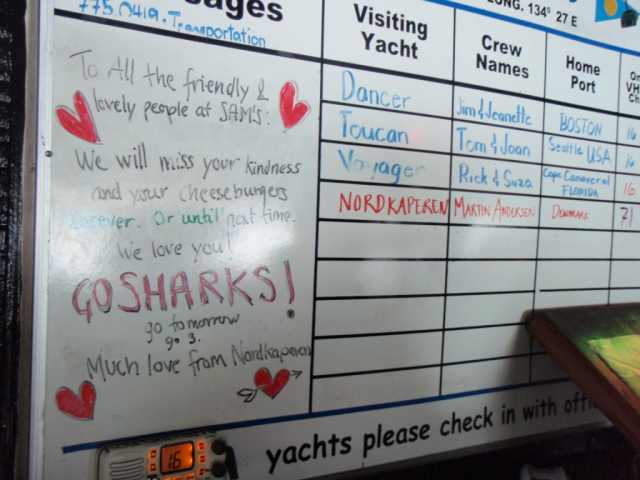 sages
775.0419. Transportation
LONG. 134° 27 E
To All the friendly &
lovely people at SAM'S:
We will miss your kindness
and your cheeseburgers
forever. Or until next time.
We love you!
GO SHARKS!
go tomorrow
go 3.
Much love from Nordkaperen
Visiting Yacht Crew Names Home Port
Dancer Jim & Jeanette BOSTON 16
Toucan Tom & Joan Seattle USA 16
Voyager Rick & Suza Cape Canaveral FLORIDA 16
NORDKAPEREN MARTIN ANDERSEN Denmark 71
yachts please check in with
16